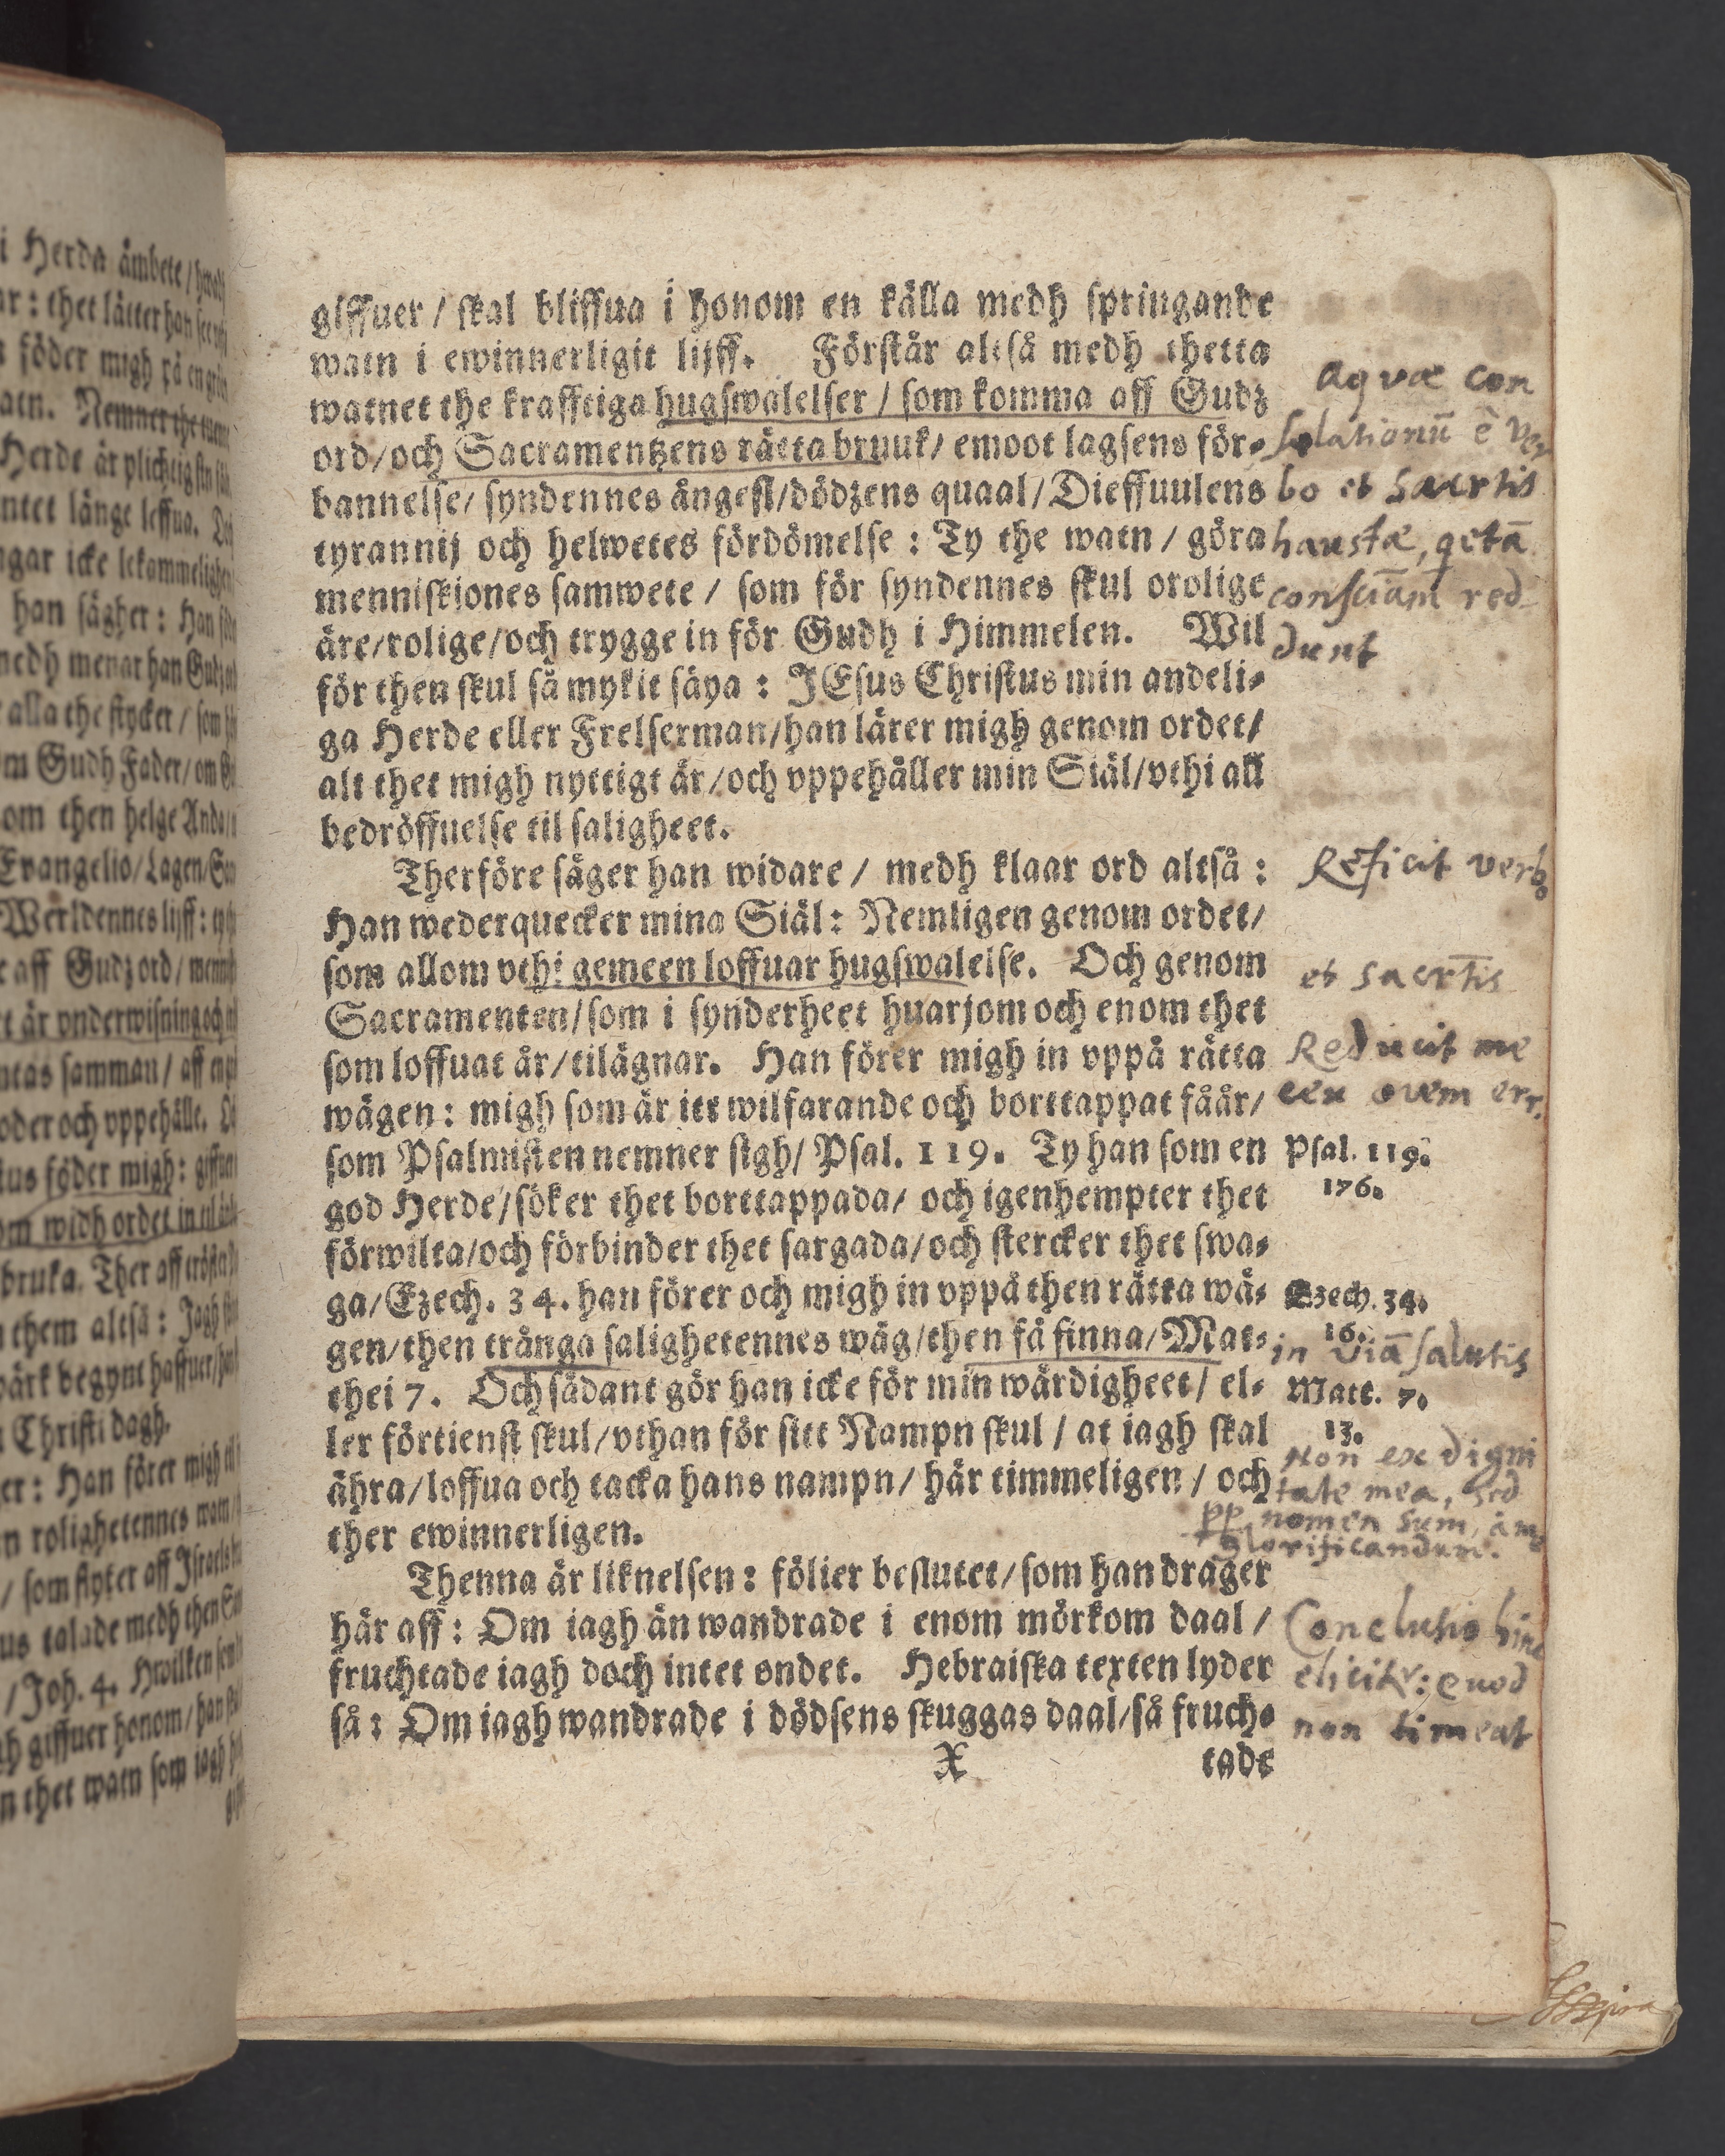 i Herda ämbete/
föder migh på en
atn. Nemner the
Herde är plichtig
ntet länge leffua.
gar icke lekammeligh
han sägher: Han
medh menar han Gudz
alla the stycker / som
m Gudh Fader/om
om then helge Anda
Evangelio/Lagen/
Werldennes lijff:
aff Gudz ord/
t är vnderwisning och
ntas samman/ aff
oder och vppehälle.
tus föder migh:
om widh ordet in til
bruka. Ther aff
them altså: Jagh
wärk begynt haffuer/
Christi dagh.
er: Han förer migh
n rolighetennes watn/
/ som flyter aff Israels
us talade medh then
/Joh. 4. Hwilken
gh giffuer honom/
n thet watn som iagh
giffuer / skal bliffua i honom en källa medh springande
watn i ewinnerligit lijff. Förstår altså medh thetta
watnet the krafftiga hugswalelser / som komma aff Gudz
ord/och Sacramentzens rätta bruuk/ emoot lagsens för-
bannelse/ syndennes ångest/dödzens quaal/Dieffuulens
tyrannij och helwetes fördömelse : Ty the watn / göra
menniskiones samwete / som för syndennes skul orolige
äre/rolige/och trygge in för Gudh i Himmelen. Wil
för then skul så mykit säya : JEsus Christus min andeli-
ga Herde eller Frelserman/han lärer migh genom ordet/
alt thet migh nyttigt är/och vppehåller min Siäl/vthi all
bedröffuelse til saligheet.
Therföre säger han widare / medh klaar ord altså :
Han wederquecker mina Siäl: Nemligen genom ordet/
som allom vthi gemeen loffuar hugswalelse. Och genom
Sacramenten/som i synderheet huarjom och enom thet
som loffuat är/tilägnar. Han förer migh in vppå rätta
wägen: migh som är itt wilfarande och borttappat fåår/
som Psalmisten nemner sigh/ Psal. 119. Ty han som en
god Herde/söker thet borttappada/ och igenhempter thet
förwilta/och förbinder thet sargada/och stercker thet swa-
ga/Ezech. 34. han förer och migh in vppå then rätta wä-
gen/then trånga salighetennes wäg/then få finna/Mat-
thei 7. Och sådant gör han icke för min wärdigheet/ el-
ler förtienst skul/vthan för sitt Nampn skul / at iagh skal
ähra/loffua och tacka hans nampn/ här timmeligen / och
ther ewinnerligen.
Thenna är liknelsen: fölier beslutet/som han drager
här aff: Om iagh än wandrade i enom mörkom daal /
fruchtade iagh doch intet ondet. Hebraiska texten lyder
så: Om iagh wandrade i dödsens skuggas daal/så fruch-
X tade
Aquæ con
solationū è Ver
bo et sacrtis
haustæ, qetā
consciām red
dunt
Reficit verbo
et sacrtis
Reducit me
ceu ovem err.
Psal. 119.
176.
Ezech. 34.
16.
in viā salutis
Matt. 7.
13.
Non ex digni
tate mea, sed
pp nomen suum,
glorificandum.
Conclusio hinc
elicitr: quod
non timeat